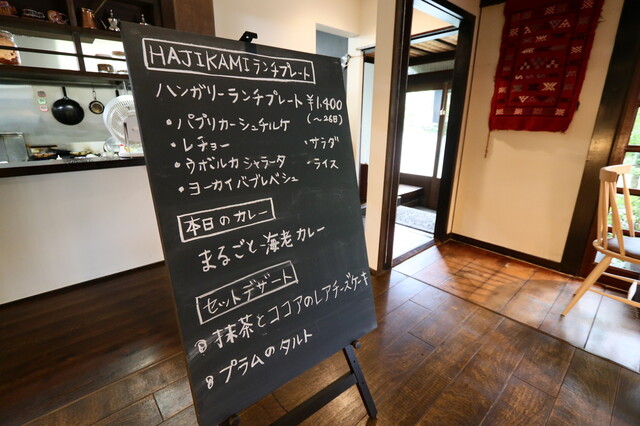 HAJIKAMI ランチプレート
ハンガリーランチプレート ¥1,400
(〜26日)
・パプリカーシュチルケ
・レチョー ・サラダ
・ウボルカシャラータ ・ライス
・ヨーカイバブレベシュ
本日のカレー
まるごと海老カレー
セットデザート
抹茶とココアのレアチーズケーキ
プラムのタルト